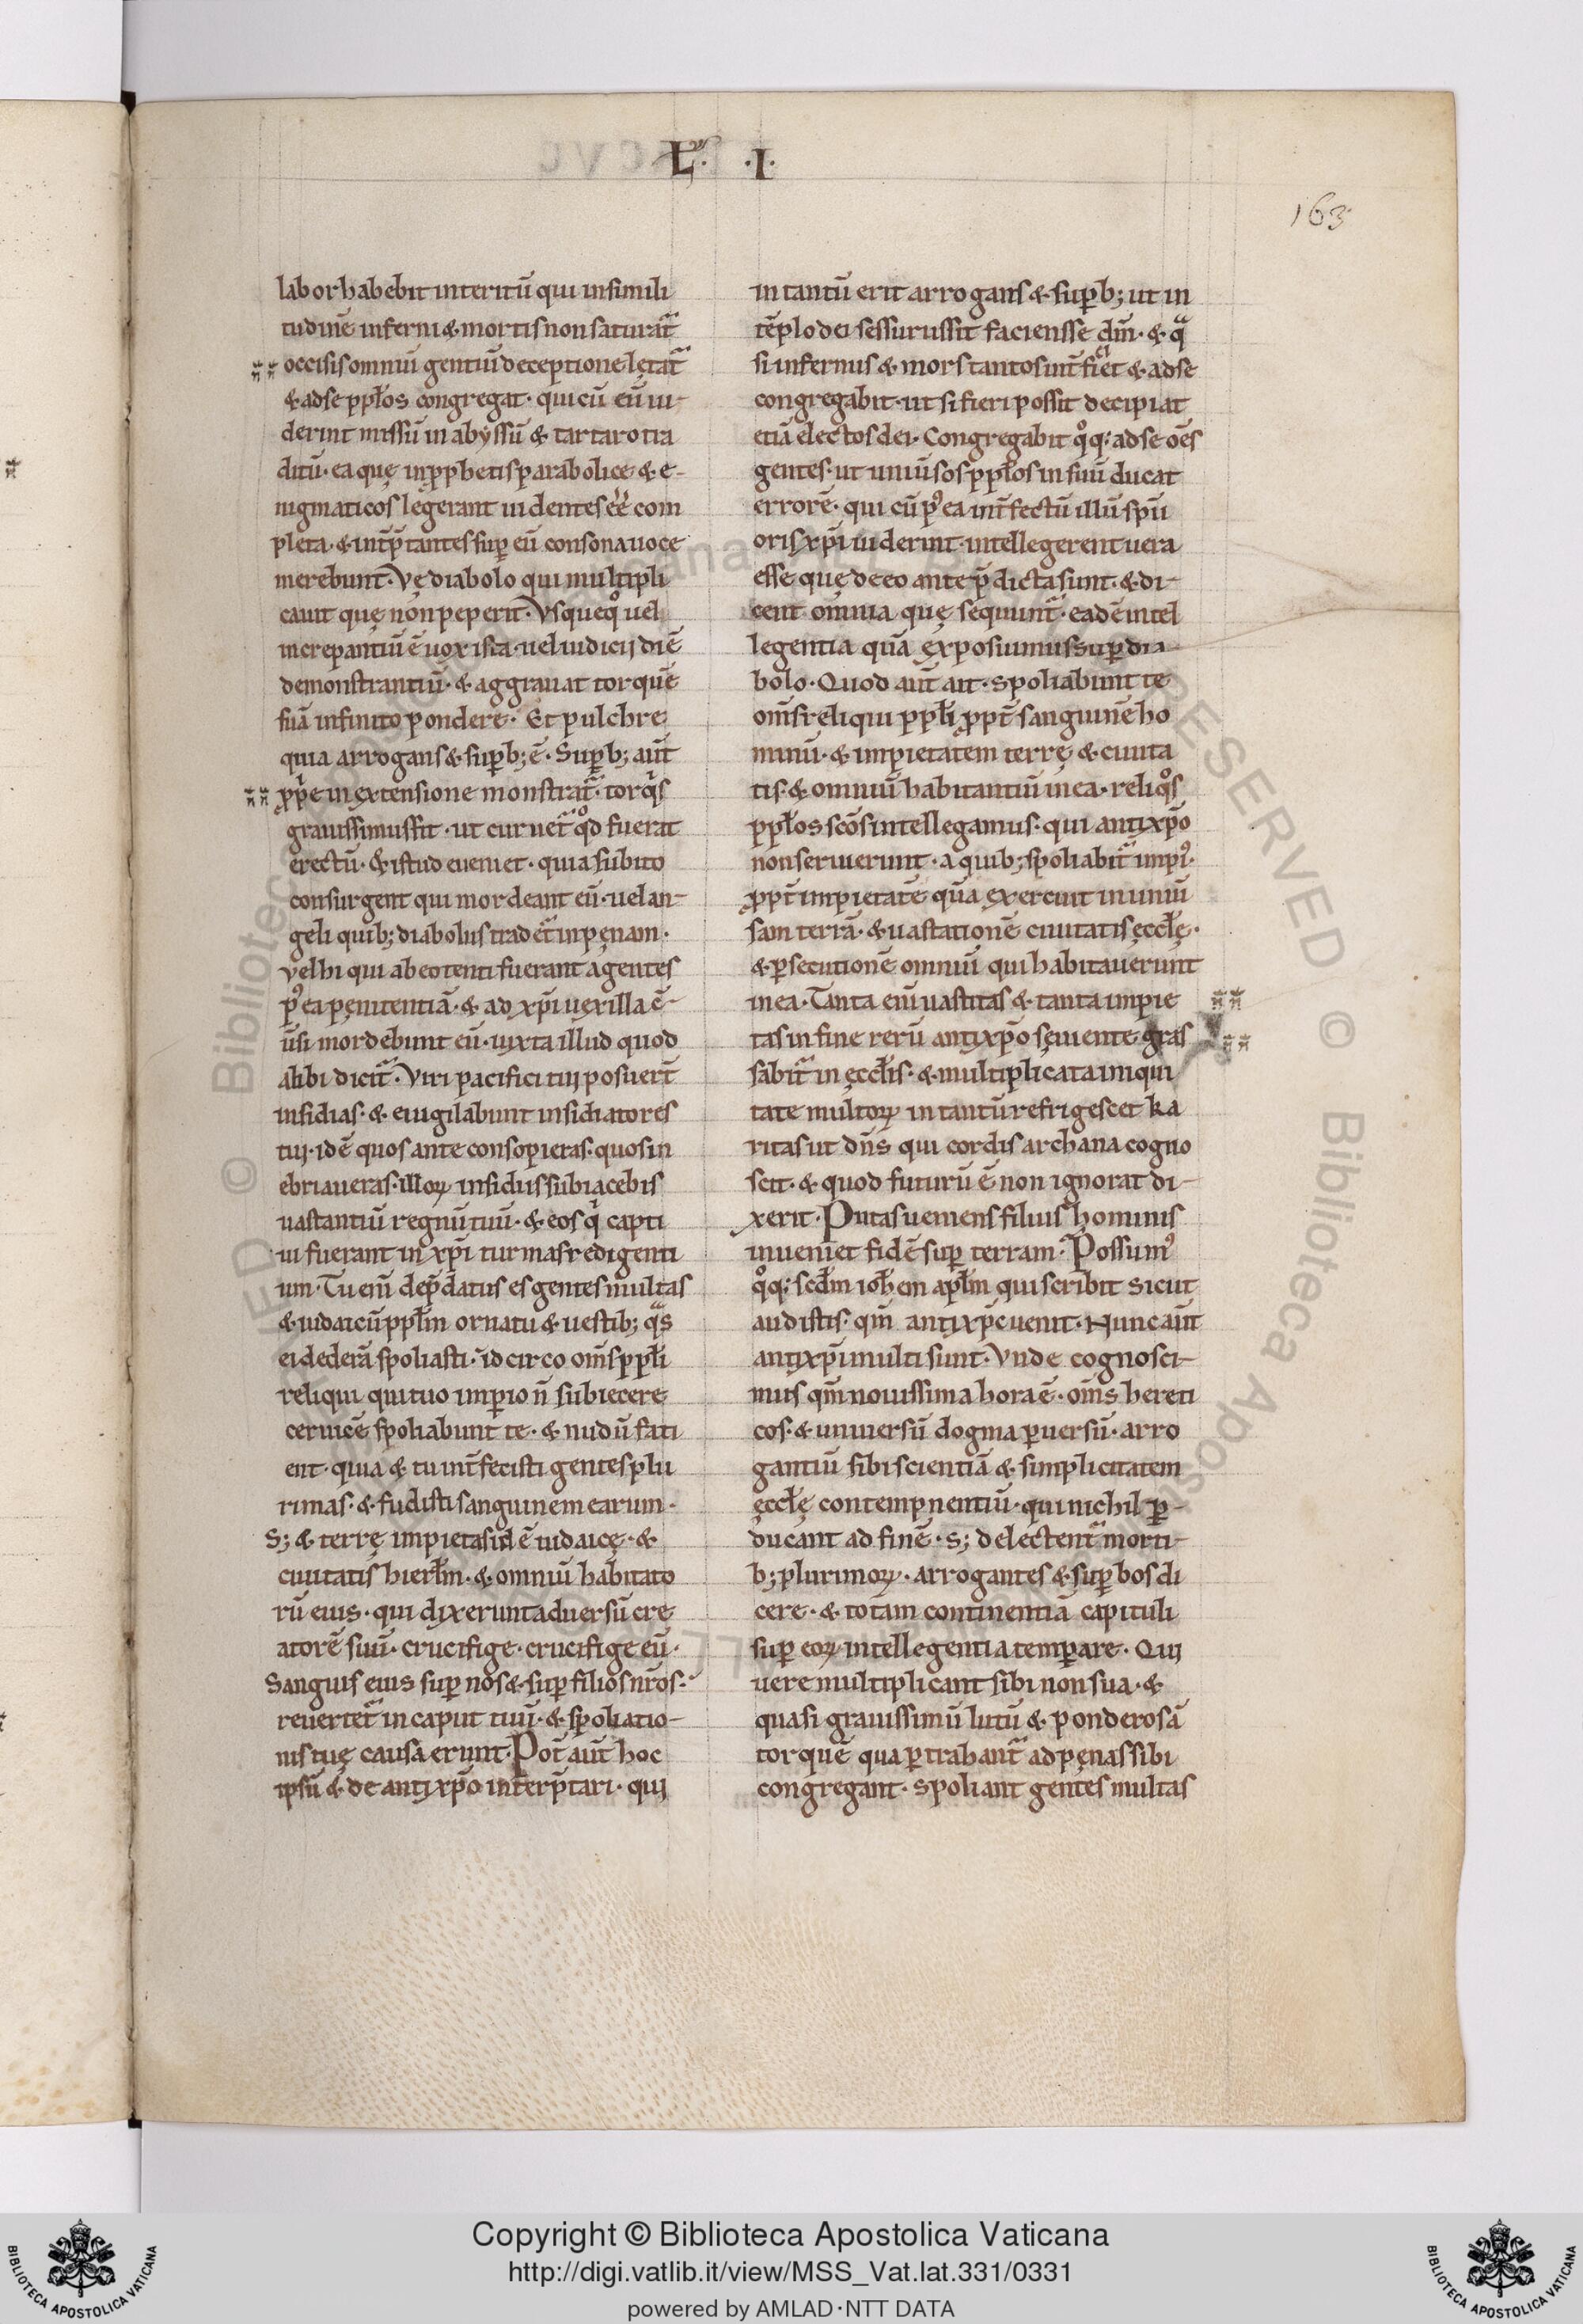 L. .I.
163
labor habebit interitū qui in simili
tudinē inferni & mortis non saturat᷑
occisis omniū gentiū deceptione lętat᷑
& ad se pplos congregat· qui cū eū ui-
derint missū in abyssū & tartaro tra
ditū· ea quę in pphetis parabolice & e-
nigmaticos legerant uidentes eē com
pleta· & int̄p̄tantes sup eū consona uoce
merebunt᷑· Vę diabolo qui multipli
cauit quę non peperit· Vsquequo uel
increpantiū ē uox ista· uel iudicij diē
demonstrantiū· & aggrauat torquē
suā infinito pondere· Et pulchre
quia arrogans & supb; ē· Supb; aut̄
pprie in extensione monstrat᷑· torqis
grauissimus fit· ut curuet᷑ qd fuerat
erectū· & istud eueniet· quia subito
consurgent qui mordeant eū· uel an-
geli quib; diabolus tradet᷑ in pęnam·
vel hi qui ab eo tenti fuerant agentes
p᷒ ea pęnitentiā· & ad xp̄i uexilla cō-
ūsi mordebunt eū· iuxta illud quod
alibi dicit᷑· Viri pacifici tui posuert̄
insidias· & euigilabunt insidiatores
tui· idē quos ante consopieras· quos in
ebriaueras· illoꝝ insidiis subiacebis
uastantiū regnū tuū· & eos qi capti
ui fuerant in xp̄i turmas redigenti
um· Tu eni dep̄datus es gentes multas
& iudaicū pplm ornatu & uestib; qas
ei dederā spoliasti· idcirco oms ppli
reliqui qui tuo impio n̄ subiecere
ceruicē spoliabunt te· & nudū faci
ent· quia & tu int̄fecisti gentes plu
rimas· & fudisti sanguinem earum·
S; & terrę impietas id ē iudaicę· &
ciuitatis hierlm· & omniū habitato
rū eius· qui dixerunt aduersū cre
atorē suū· crucifige· crucifige eū·
Sanguis eius sup nos & sup filios nr̄os·
reuertet᷑ in caput tuū· & spoliatio-
nis tuę causa erunt· Pot̄ aut̄ hoc
ipsū & de antixp̄o interp̄tari· qui
in tantū erit arrogans & supb; ut in
tēplo dei sessurus sit faciens se dm̄· & qa
si infernus & mors tantos int̄ficiet & ad se
congregabit· ut si fieri possit decipiat
etiā electos dei· Congregabit qoq; ad se oēs
gentes· ut uniūsos pplos in suū ducat
errorē· qui cū p᷒ ea int̄fectū illū spū
oris xp̄i uiderint· intellegerent uera
esse quę de eo ante p̄dicta sunt· & di-
cent omnia quę sequunt᷑· eadē intel
legentia quā exposuimus sup dia-
bolo· Quod aut̄ ait· spoliabunt te
oms reliqui ppli ppt̄ sanguinē ho
minū· & impietatem terrę & ciuita
tis· & omniū habitantiū in ea· reliqos
pplos scōs intellegamus· qui antixp̄o
non seruierunt· a quib; spoliabit᷑ impi᷒·
ppt̄ impietatē quā exercuit in uniū
sam terrā· & uastationē ciuitatis ęcclę·
& psecutionē omniū qui habitauerunt
in ea· Tanta eni uastitas & tanta impie
tas in fine rerū antixp̄o seuiente gras
sabit᷑ in ęcclis· & multiplicata iniqui
tate multoꝝ in tantū refrigescet ka
ritas ut dn̄s qui cordis archana cogno
scit· & quod futurū ē non ignorat di-
xerit· Putas ueniens filius hominis
inueniet fidē sup terram· Possum᷒
qoq; scdm iohem aplm qui scribit sicut
audistis· qm antixp̄c uenit· Nunc aut̄
antixp̄i multi sunt· Vnde cognosci-
mus qm nouissima hora ē· oms hereti
cos· & uniuersū dogma puersū· arro
gantiū sibi scientiā & simplicitatem
ęcclę contempnentiū· qui nichil p-
ducant ad finē· s; delectent᷑ morti-
b; plurimoꝝ· arrogantes & supbos di
cere· & totam continentiā capituli
sup eoꝝ intellegentia temperare· Qui
uere multiplicant sibi non sua· &
quasi grauissimū lutū & ponderosā
torquē qua ptrahant᷑ ad pęnas sibi
congregant· spoliant gentes multas
Copyright © Biblioteca Apostolica Vaticana
http://digi.vatlib.it/view/MSS_Vat.lat.331/0331
powered by AMLAD·NTT DATA
BIBLIOTECA APOSTOLICA VATICANA
BIBLIOTECA APOSTOLICA VATICANA